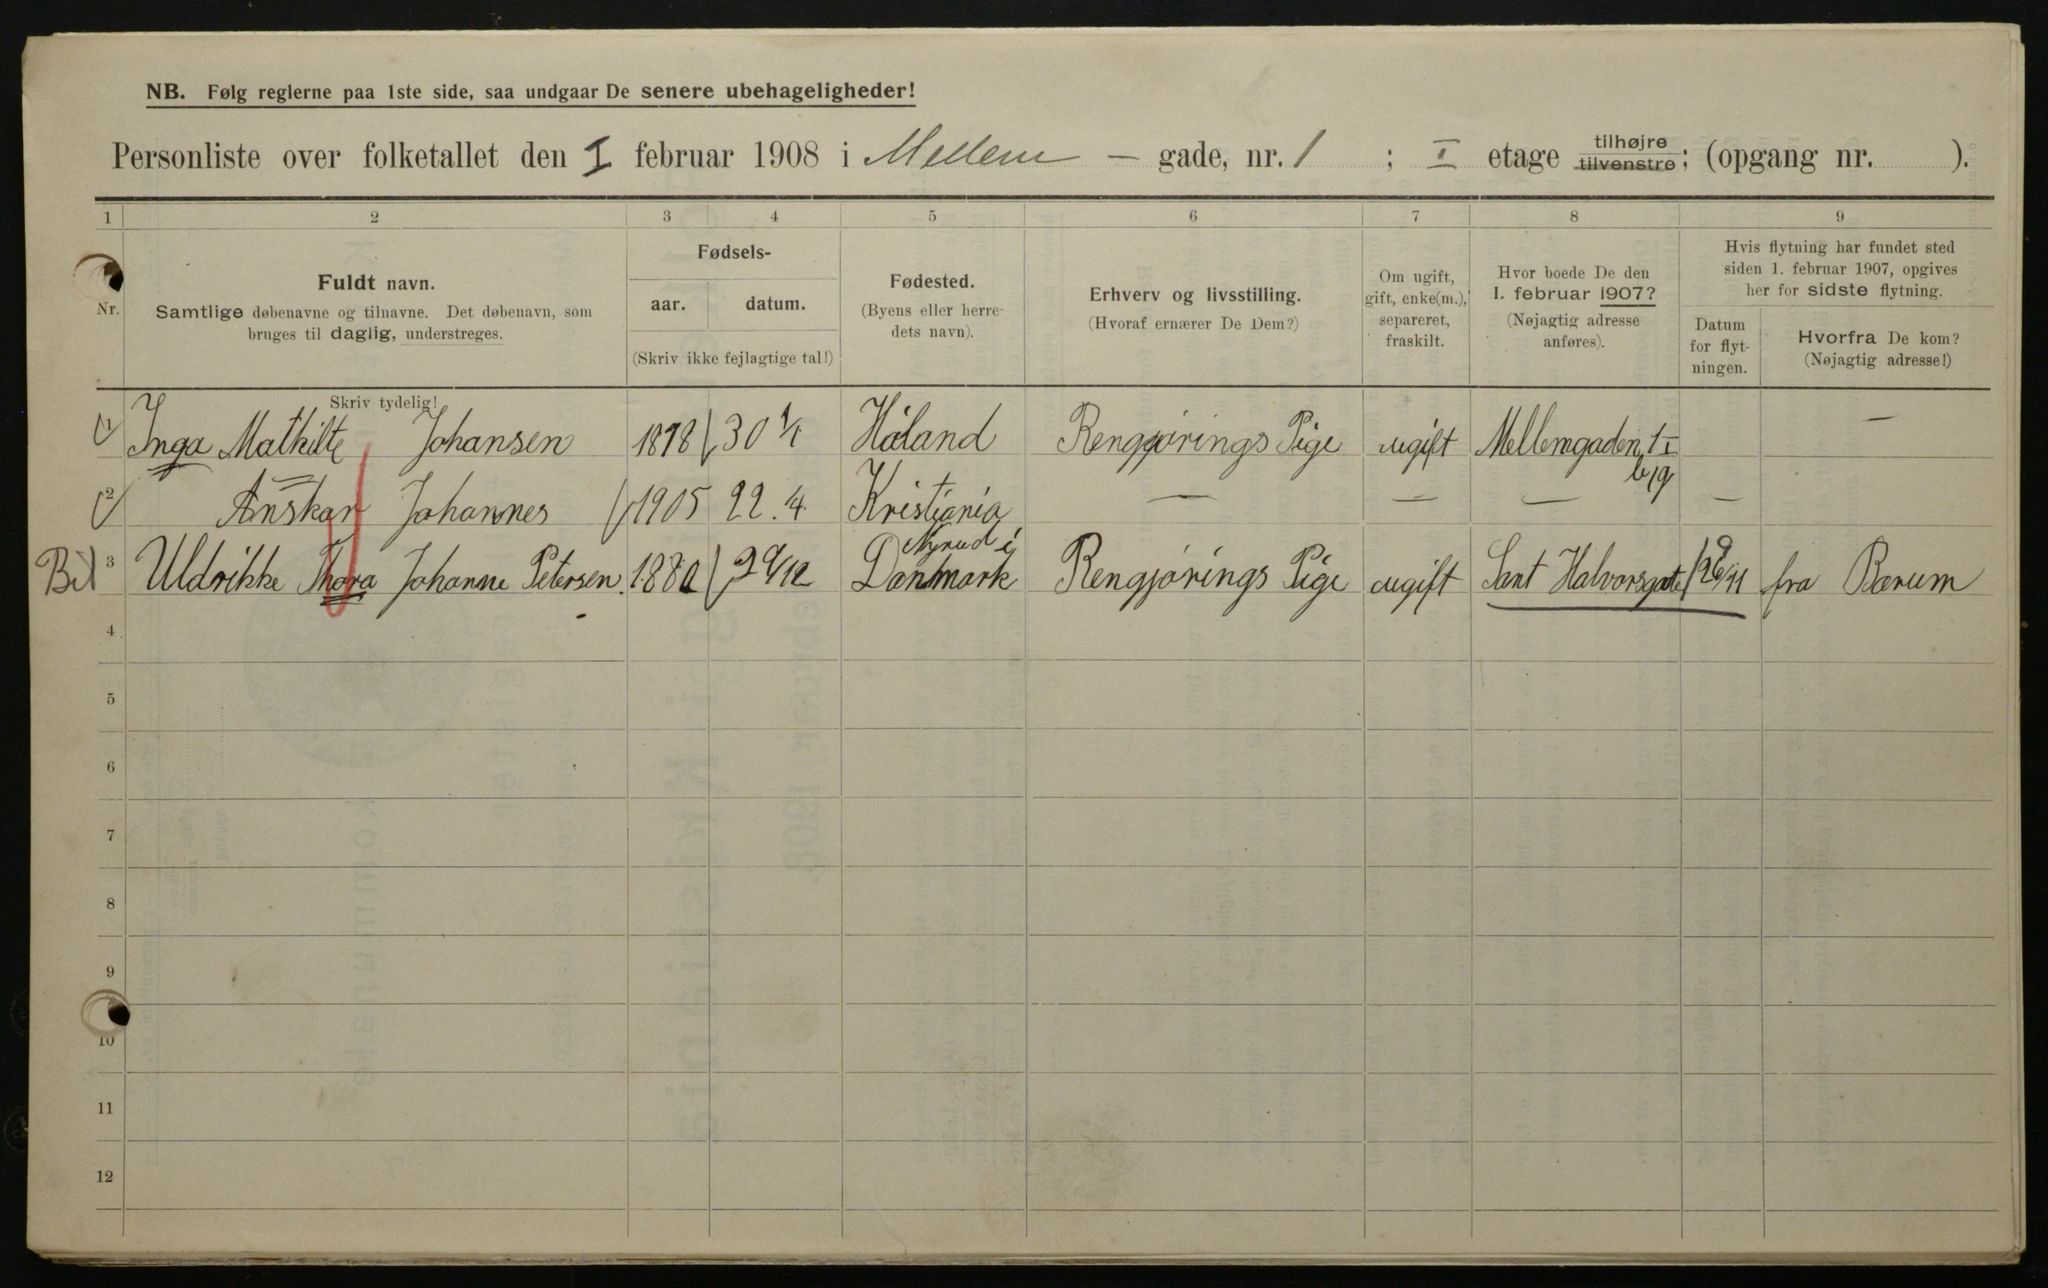 NB. Følg reglerne paa 1ste side, saa undgaar De senere ubehageligheder!
Personliste over folketallet den I februar 1908 i Mellem — gade, nr. 1 ; I etage tilhøjre tilvenstre; (opgang nr. ).
1 2 3 4 5 6 7 8 9
Nr.
Fuldt navn.
Samtlige døbenavne og tilnavne. Det døbenavn, som
bruges til daglig, understreges.
Skriv tydelig!
Fødsels-
aar. datum.
(Skriv ikke fejlagtige tal!)
Fødested.
(Byens eller herre-
dets navn).
Erhverv og livsstilling.
(Hvoraf ernærer De Dem?)
Om ugift,
gift, enke(m.),
separeret,
fraskilt.
Hvor boede De den
1. februar 1907?
(Nøjagtig adresse
anføres).
Hvis flytning har fundet sted
siden 1. februar 1907, opgives
her for sidste flytning.
Datum
for flyt-
ningen.
Hvorfra De kom?
(Nøjagtig adresse!)
1 Inga Mathilte Johansen 1878 30 1/1 Høland Rengjørings Pige ugift Mellemgaden 1 I —
2 Anskar Johannes 1905 22. 4. Kristiania — — — —
3 Uldrikke Thora Johanne Petersen. 1880 29/12 i Danmark Rengjørings Pige ugift Sant Halvorsgate fra Bærum
4
5
6
7
8
9
10
11
12